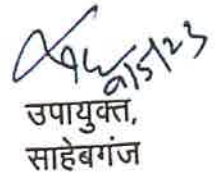 9/5/23
उपायुक्त,
साहेबगंज